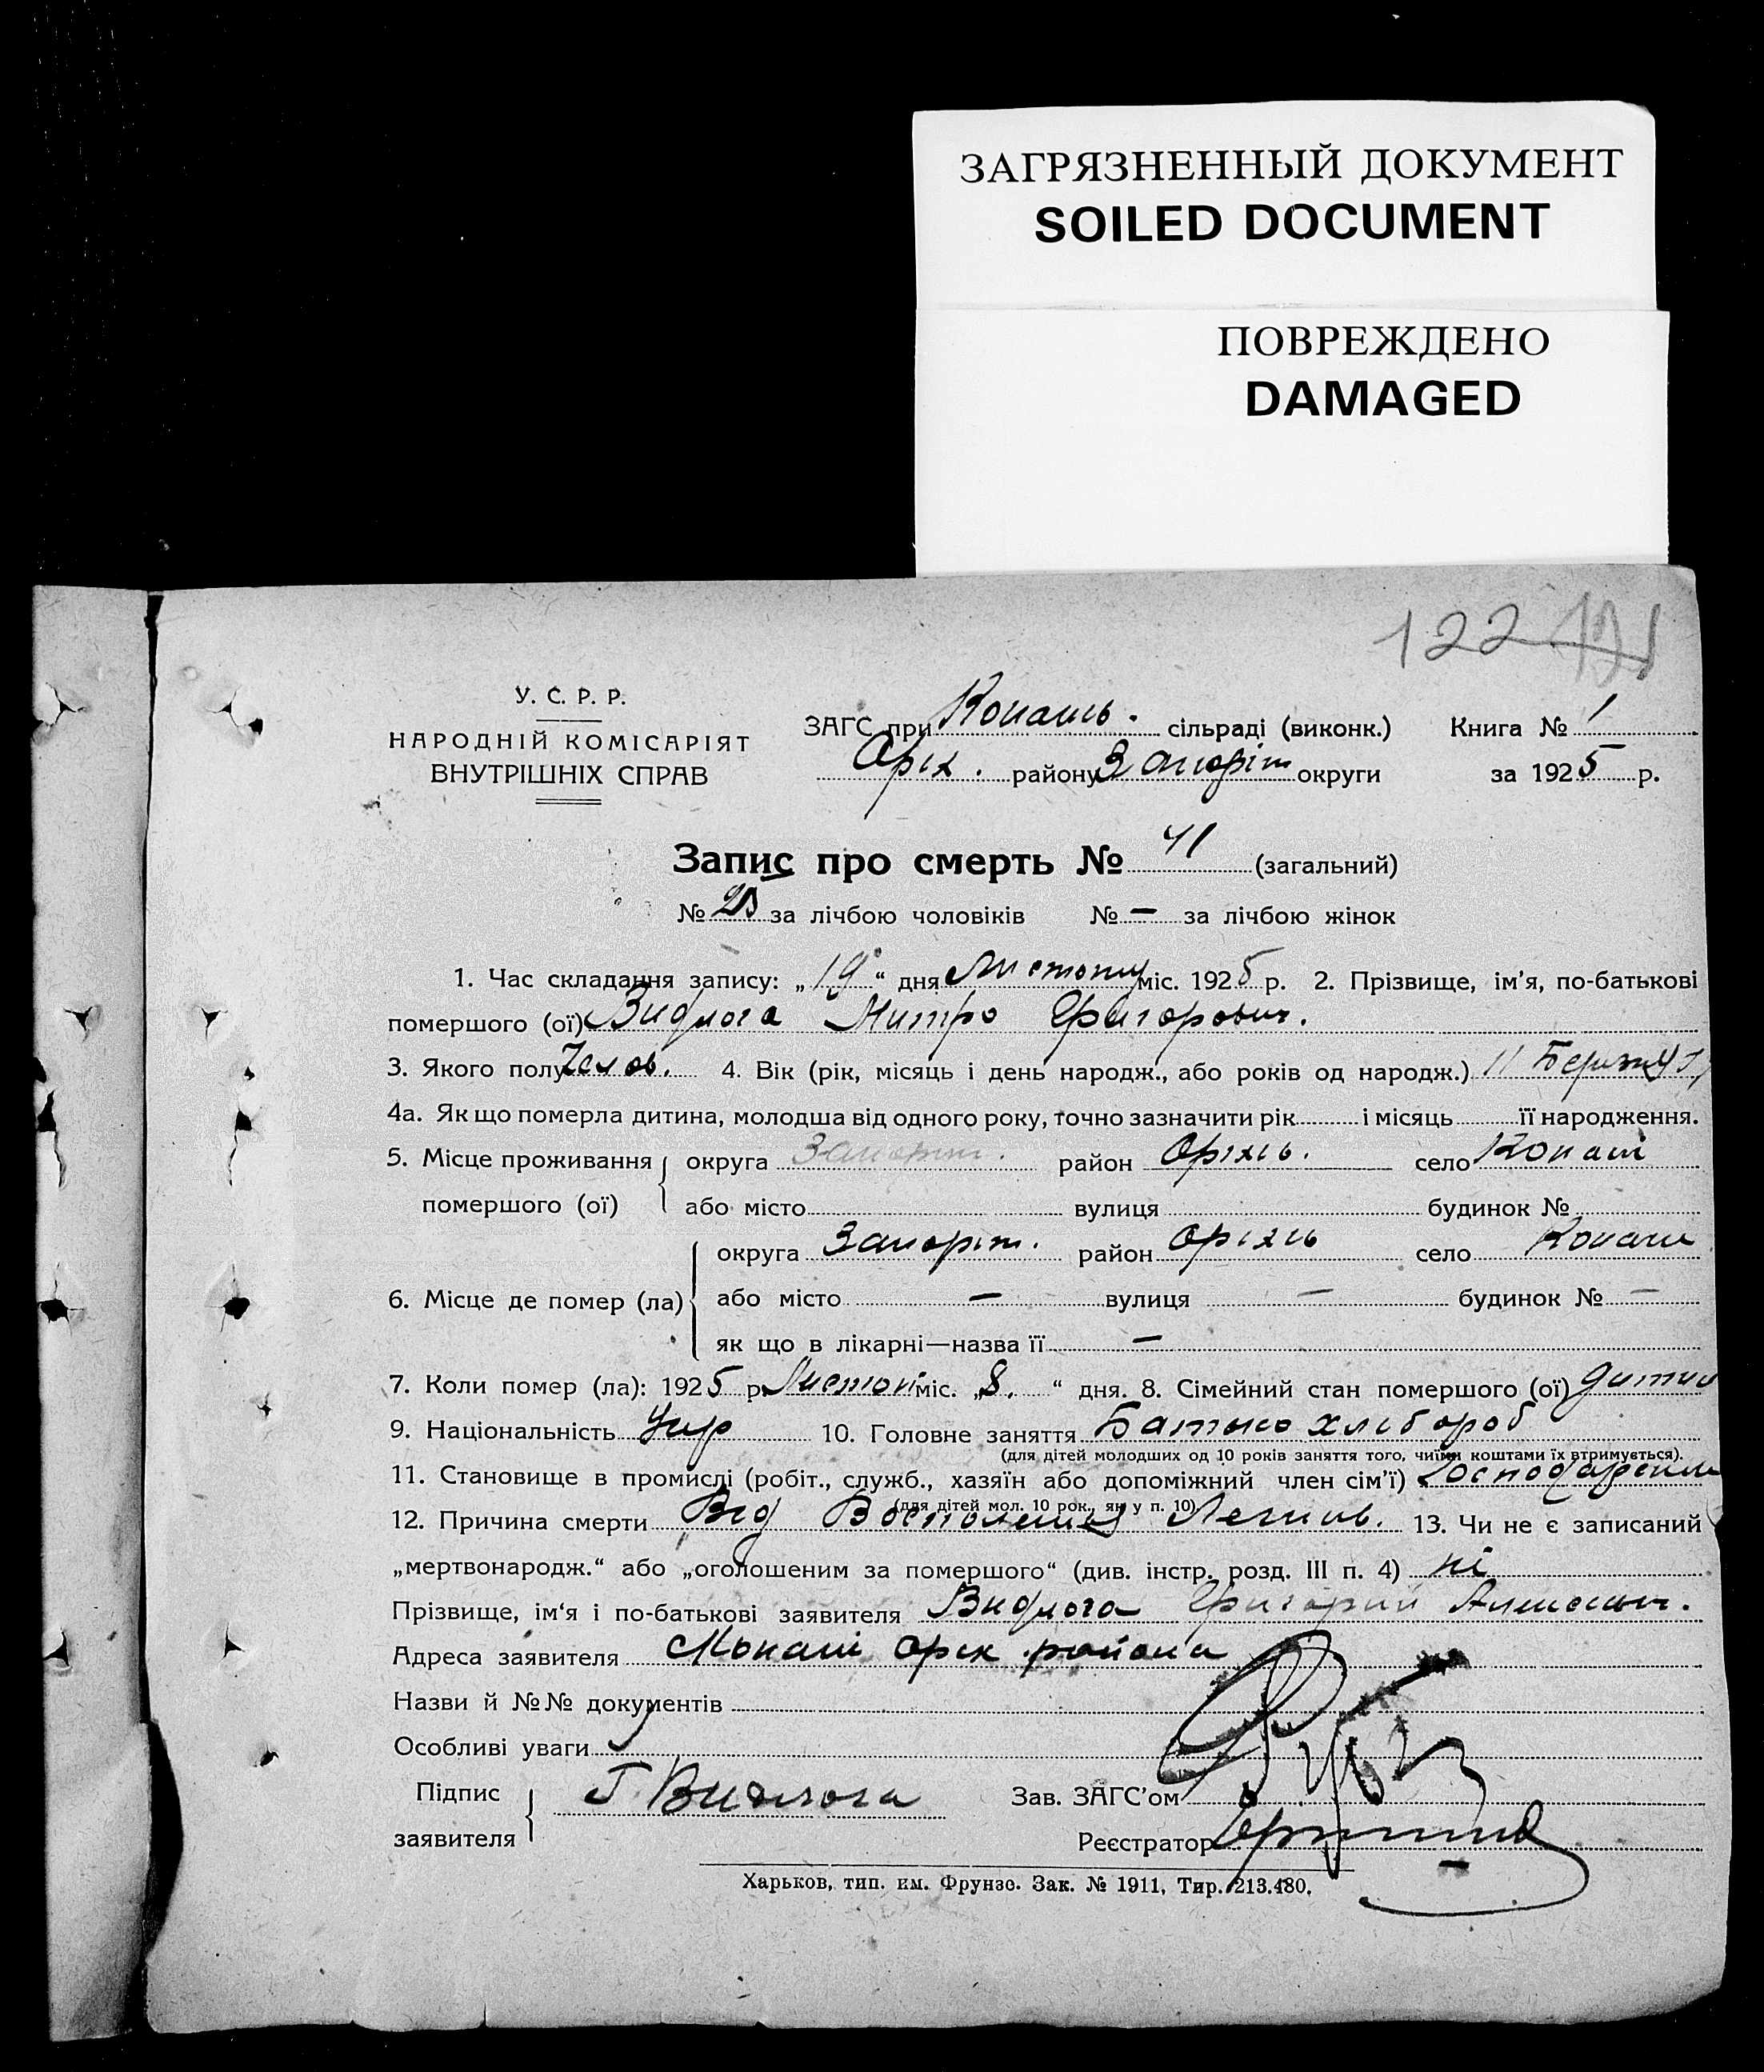 ЗАГРЯЗНЕННЫЙ ДОКУМЕНТ
SOILED DOCUMENT
ПОВРЕЖДЕНО
DAMAGED
122
У. С. Р. Р.
НАРОДНІЙ КОМІСАРІЯТ
ВНУТРІШНІХ СПРАВ
ЗАГС при Копань. сільраді (виконк.) Книга № 1
Оріх. району Запоріт округи за 1925 р.
Запис про смерть № 41 (загальний)
№ за лічбою чоловіків № — за лічбою жінок
1. Час складання запису: „19“ дня Листопа міс. 1925 р. 2. Прізвище, ім'я, по-батькові
помершого (ої) Видлога Митро Григорович.
3. Якого полу Челов. 4. Вік (рік, місяць і день народж., або років од народж.) 11
4а. Як що померла дитина, молодша від одного року, точно зазначити рік і місяць її народження.
5. Місце проживання помершого (ої) округа Запоріт. район Оріхь. село Копані
або місто вулиця будинок №
6. Місце де помер (ла) округа Запоріт. район Оріхь село Копани
або місто — вулиця — будинок № —
як що в лікарні—назва її —
7. Коли помер (ла): 1925 р. Листоп міс. „8.“ дня. 8. Сімейний стан помершого (ої) дитин
9. Національність Укр 10. Головне заняття Батько хлібороб
(для дітей молодших од 10 років заняття того, чиїми коштами їх втримується).
11. Становище в промислі (робіт., служб., хазяїн або допоміжний член сім'ї)
(для дітей мол. 10 рок., як у п. 10)
12. Причина смерти Від Восполения Легків. 13. Чи не є записаний
„мертвонародж.“ або „оголошеним за помершого“ (див. інстр. розд. III п. 4) ні
Прізвище, ім'я і по-батькові заявителя Видлога Григорий
Адреса заявителя Копані Оріх района
Назви й №№ документів
Особливі уваги
Підпис заявителя Г. Видлога Зав. ЗАГС'ом
Реєстратор
Харьков, тип. им. Фрунзе. Зак. № 1911, Тир. 213.480.